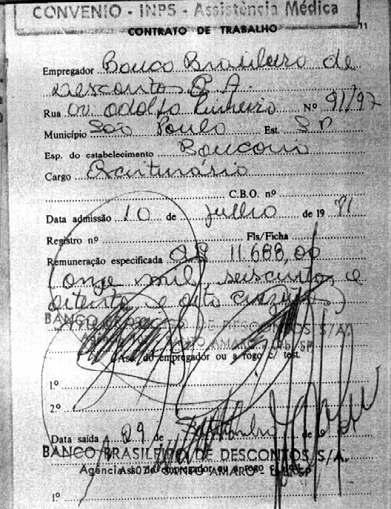 CONVENIO - INPS - Assistência Médica
CONTRATO DE TRABALHO 11
Empregador Banco Brasileiro de
Descontos S.A.
Rua Av. Adolfo Pinheiro Nº 91/97
Município São Paulo Est. SP
Esp. do estabelecimento Bancário
Cargo Escriturário
C.B.O. nº
Data admissão 10 de Julho de 19 81
Registro nº Fls/Ficha
Remuneração especificada 11.688,00
(onze mil, seiscentos e
oitenta e oito cruzeiros
BANCO BRASILEIRO DE DESCONTOS S/A.
Ass. do empregador ou a rogo c/ test.
1º
2º
Data saída 29 de
BANCO BRASILEIRO DE DESCONTOS S/A.
Ass. do empregador ou a rogo c/ test.
Agência SANTO AMARO
1º